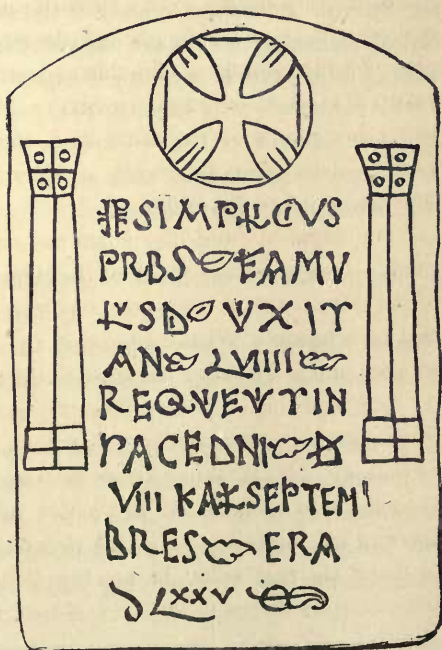 SIMPLICIVS
PRBS FAMV
LVSD VIXIT
AN LVIIII
REQVEVTIN
PACE DNI D
VIII KAL SEPTEM'
BRES ERA
DLXXV